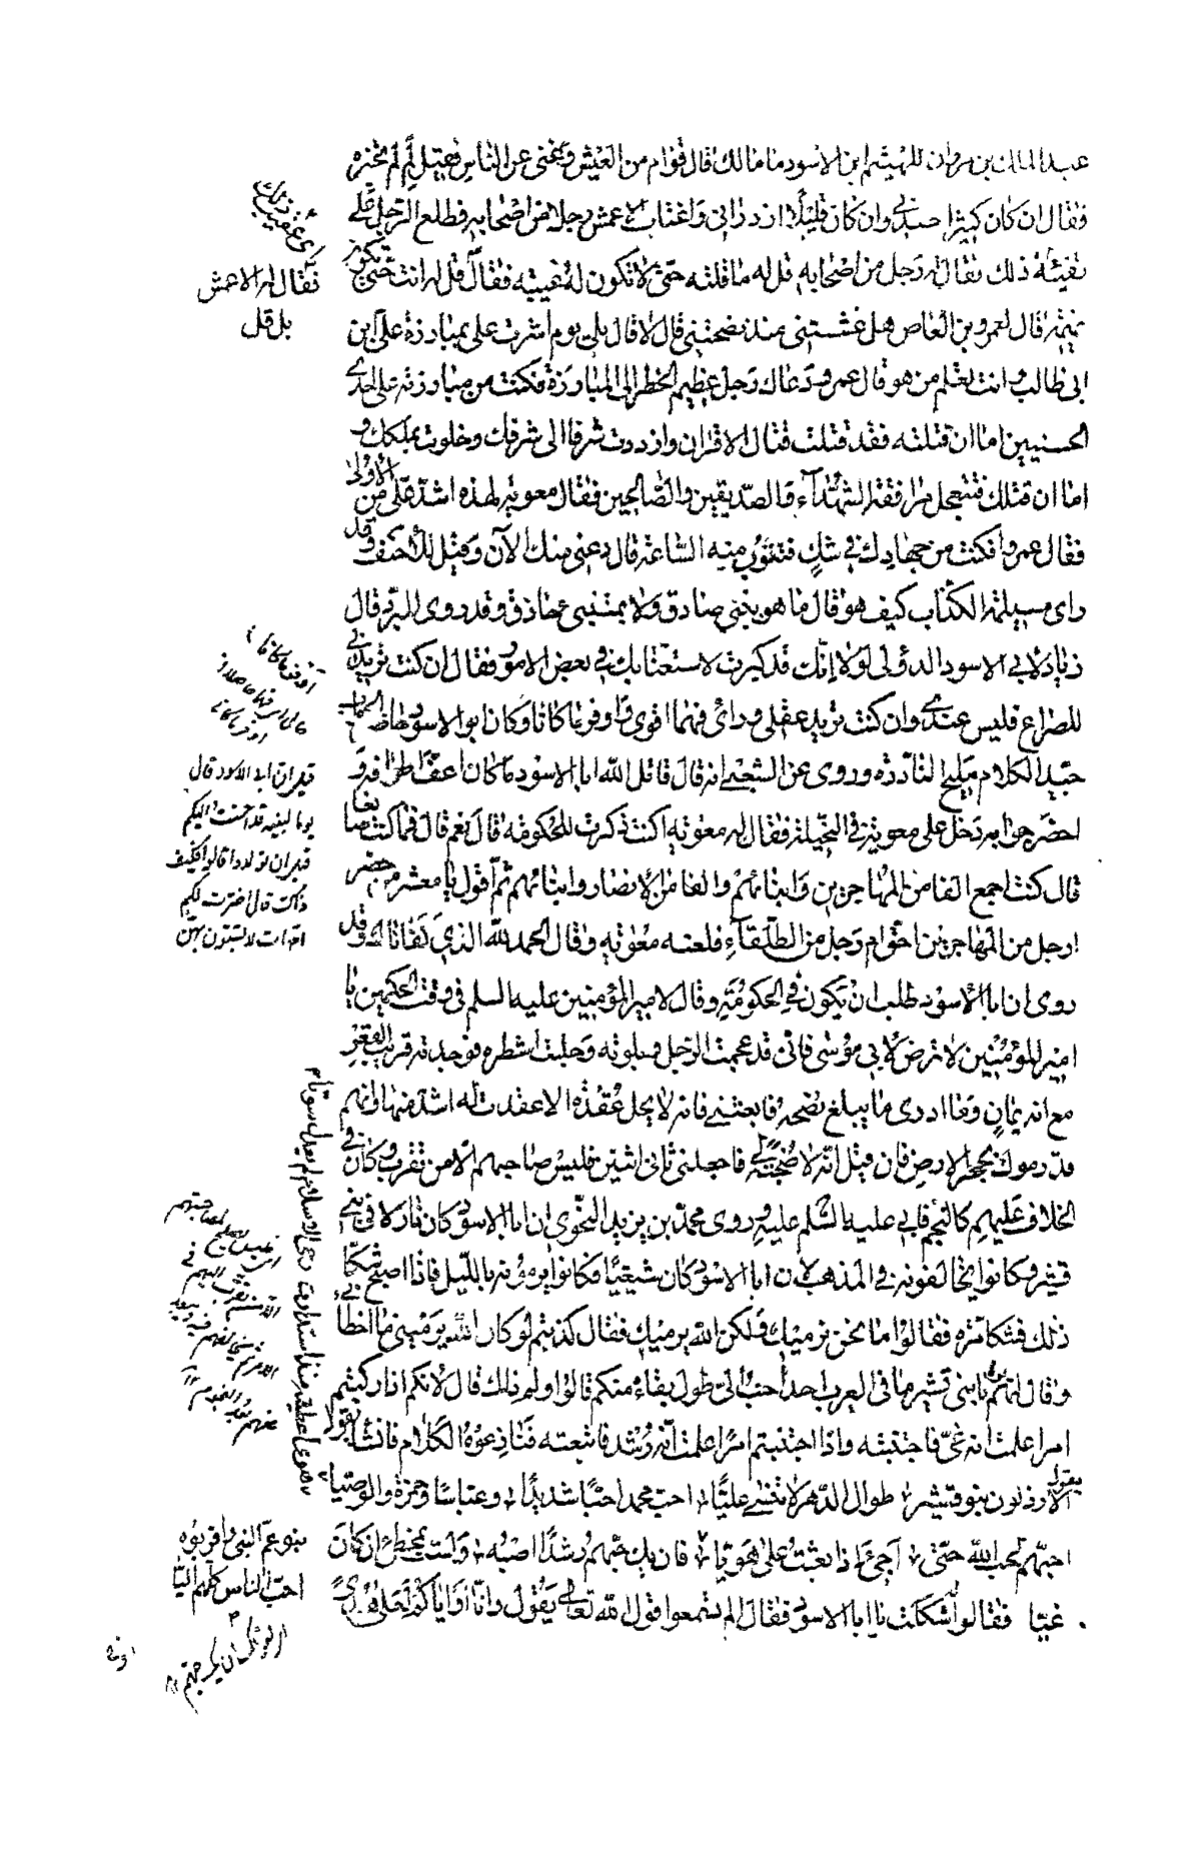 عبد الملك بن مروان للهيثم ابن الاسود ما مالك قال قوام من العيش وغنى عن الناس فقيل لم لم تخبره
فقال ان كان كثيرا حسدني وان كان قليلا ازدراني واغتاب الاعمش رجلا من اصحابه فطلع الرجل على
تفيئة ذلك فقال له رجل من اصحابه قل له ما قلته حتى لا تكون له غيبة فقال قل له انت حتى تكون
نميمة قال لعمرو بن العاص هل غششتني منذ نصحتني قال لا قال بلى يوم اشرت على بمبارزة على بن
ابى طالب وانت تعلم من هو قال عمرو دعاك رجل عظيم الخطر الى المبارزة فكنت من مبارزته على احدى
الحسنيين اما ان قتلته فقد قتلت قتال الاقران وازددت شرفا الى شرفك وخلوت بملكك و
اما ان قتلك فتتعجل مرافقة الشهداء والصديقين والصالحين فقال معوية لهذه اشد على من الاولى
فقال عمرو افكنت من جهادك في شك فتتوب منه الساعة قال دعنى منك الآن وقيل للاحنف وقد
راى مسيلمة الكذاب كيف هو قال ما هو بنبى صادق ولا بمتنبى حاذق وقد روى المبرد قال
زياد لابى الاسود الدؤلى لولا انك قد كبرت لاستعنا بك فى بعض الامور فقال ان كنت تريدنى
للصراع فليس عندى وان كنت تريد عقلى ورائى فهما اقوى او فر ما كانا وكان ابو الاسود حاضر الجواب
جيد الكلام مليح النادرة وروى عن الشعبى انه قال قاتل الله ابا الاسود ما كان اعف اطرافه و
احضر جوابه دخل على معوية فى النخيلة فقال له معوية اكنت ذكرت للحكومة قال نعم قال فما كنت صانعا
قال كنت اجمع الفا من المهاجرين وابنائهم والفا من الانصار وابنائهم ثم اقول يا معشر من حضر
ارجل من المهاجرين احق ام رجل من الطلقاء فلعنه معوية وقال الحمد لله الذى كفاناك وقد
روى ان ابا الاسود طلب ان يكون فى الحكومة وقال لامير المؤمنين عليه السلم فى وقت الحكمين يا
امير المؤمنين لا ترض لابى موسى فانى قد عجمت الرجل وبلوته وحلبت اشطره فوجدته قريب القعر
مع انه يمان وما ادرى ما يبلغ نصحه فابعثنى فانه لا يحل عقدة الا عقدت له اشد منها وانهم
قد رموك بحجر الارض فان قيل انه لا صحبة لى فاجعلنى ثانى اثنين فليس صاحبهم الا من تقرب وكان فى
الخلاف عليهم كالنجم فابى عليه السلم عليه وروى محمد بن يزيد النحوى ان ابا الاسود كان نازلا فى بنى
قشير وكانوا يخالفونه فى المذهب لان ابا الاسود كان شيعيا فكانوا يرمونه بالليل فاذا اصبح شكا
ذلك فشكاهم مره فقالوا ما نحن نرميك ولكن الله يرميك فقال كذبتم لو كان الله يرمينى ما اخطأنى
وقال لهم يا بنى قشير ما فى العرب احد احب الى طول بقاء منكم قالوا ولم ذلك قال لانكم اذا ركبتم
امرا علمت انه غى فاجتنبته واذا اجتنبتم امرا علمت انه رشد فاتبعته فنازعوه الكلام فانشأ يقول
يقول الارذلون بنو قشير طوال الدهر لا تنسى عليا احب محمدا حبا شديدا وعباسا وحمزة والوصيا
احبهم لحب الله حتى اجئ اذا بعثت على هويا فان يك حبهم رشدا اصبه ولست بمخطئ ان كان
غيا فقالوا له اشككت يا ابا الاسود فقال الم تسمعوا قول الله تعالى يقول وانا او اياكم لعلى هدى
اى عقيب ذلك
فقال له الاعمش
بل قل
قيل ان ابا الاسود قال
يوما لبنيه قد احسنت اليكم
قبل ان تولدوا قالوا فكيف
ذاك قال اخترت لكم
امهات لا تسبون بهن
بنو عم النبى واقربوه
احب الناس كلهم اليا